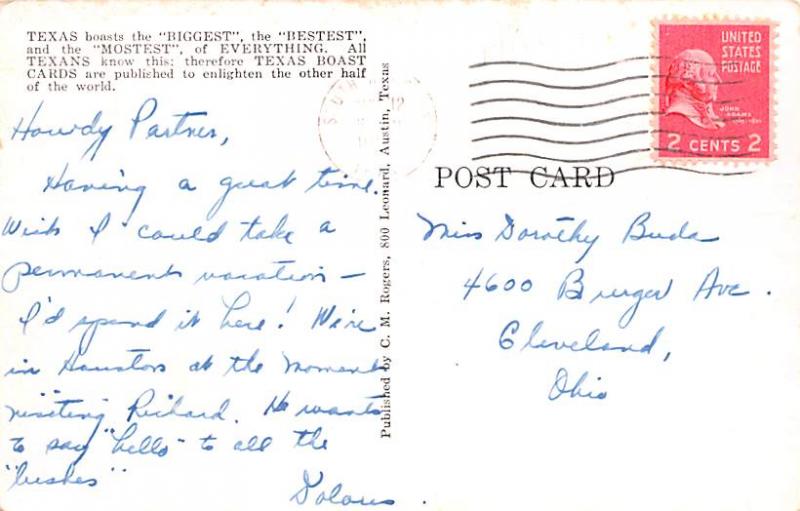 TEXAS boasts the "BIGGEST", the "BESTEST",
and the "MOSTEST", of EVERYTHING. All
TEXANS know this; therefore TEXAS BOAST
CARDS are published to enlighten the other half
of the world.
Howdy Partner,
Having a great time.
Wish I could take a
permanent vacation —
I'd spend it here! We're
in Houston at the moment
visiting Richard. He wants
to say "hello" to all the
Dolores.
Published by C. M. Rogers, 800 Leonard, Austin, Texas
UNITED
STATES
POSTAGE
JOHN
ADAMS
2 CENTS 2
12
POST CARD
Miss Dorothy Buda
4600 Ave.
Cleveland,
Ohio